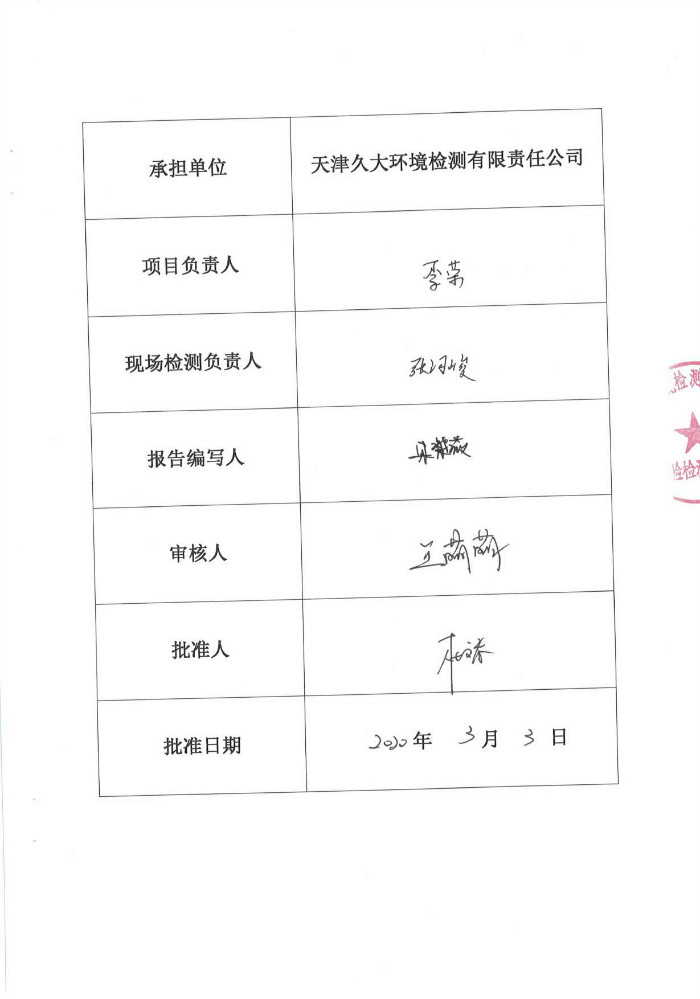 承担单位
天津久大环境检测有限责任公司
项目负责人
李荣
现场检测负责人
报告编写人
审核人
批准人
批准日期
2020年 3月 3日
检测
检检测